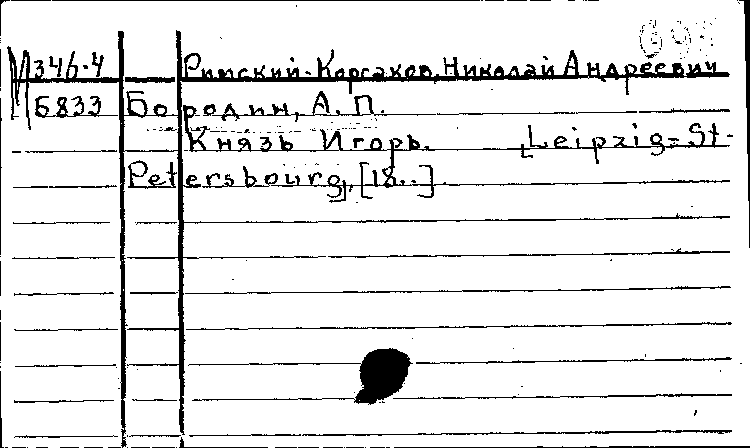 М346-4 Римский-Корсаков, Николай Андреевич
Б833 Бородин, А. П.
Князь Игорь. Leipzig-St-
Petersbourg, [18..]